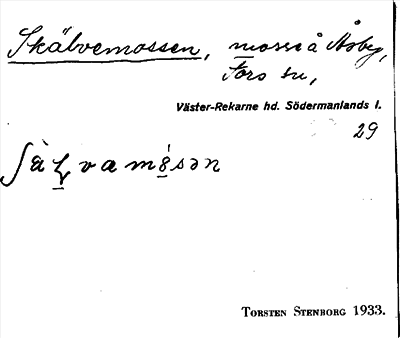 Skälvemossen, mosse å Åsby,
Tors sn,
Väster-Rekarne hd. Södermanlands l.
29
TORSTEN STENBORG 1933.